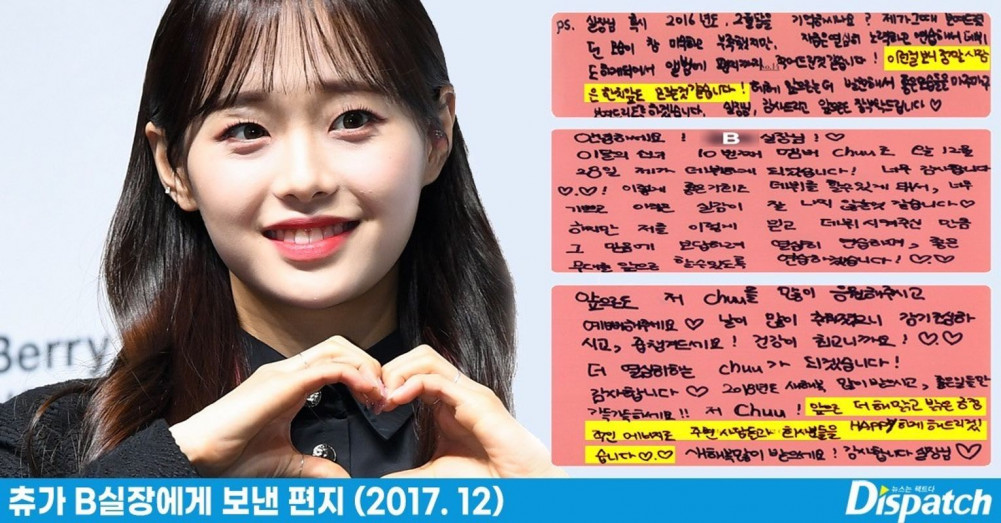 ps. 실장님 혹시 2016년도, 2월달을 기억하시나요? 제가그때 보여드렸
던 모습이 참 미숙하고 부족했지만, 지금은열심히 노력하고 연습해서 데뷔
도하게되어서 앨범에 적어드릴것같습니다! 이런걸 보면 정말 사람
은 한치앞도 모르는것같습니다! 앞으로는 더 발전해서 좋은모습들은
하겠습니다. 실장님, 감사드리고 앞으로 잘부탁드립니다♡
안녕하세요! B 실장님!♡
이달의 소녀 10번째 멤버 Chuu로 12월
28일 제가 데뷔하게 되었습니다! 너무 감사합니다
♡.♡! 이렇게 좋은기회로 데뷔를 할수있게 돼서, 너무
기쁘고 아직은 실감이 잘 나지 않는것 같습니다♡
하지만 저를 이렇게 믿고 데뷔시켜주신 만큼
그 믿음에 보답하고 열심히 연습하며, 좋은
무대를 앞으로 할수있도록 연습하겠습니다! ♡.♡
앞으로도 저 Chuu를 많이 응원해주시고
예뻐해주세요♡ 날이 많이 추워졌으니 감기조심하
시고, 흡챙겨드세요! 건강이 최고니까요! ♡♡
더 열심히하는 chuu가 되겠습니다!
감사합니다♡ 2018년도 새해복 많이받으시고, 좋은일들만
가득가득하세요!! 저 Chuu! 앞으로 더 해맑고 밝은 긍정
적인 에너지로 주변 사람들과 회사분들을 HAPPY하게 해드리겠
습니다♡.♡ 새해복많이 받으세요! 감사합니다 실장님♡
Berry
츄가 B실장에게 보낸 편지 (2017. 12)
뉴스는 팩트다
Dispatch